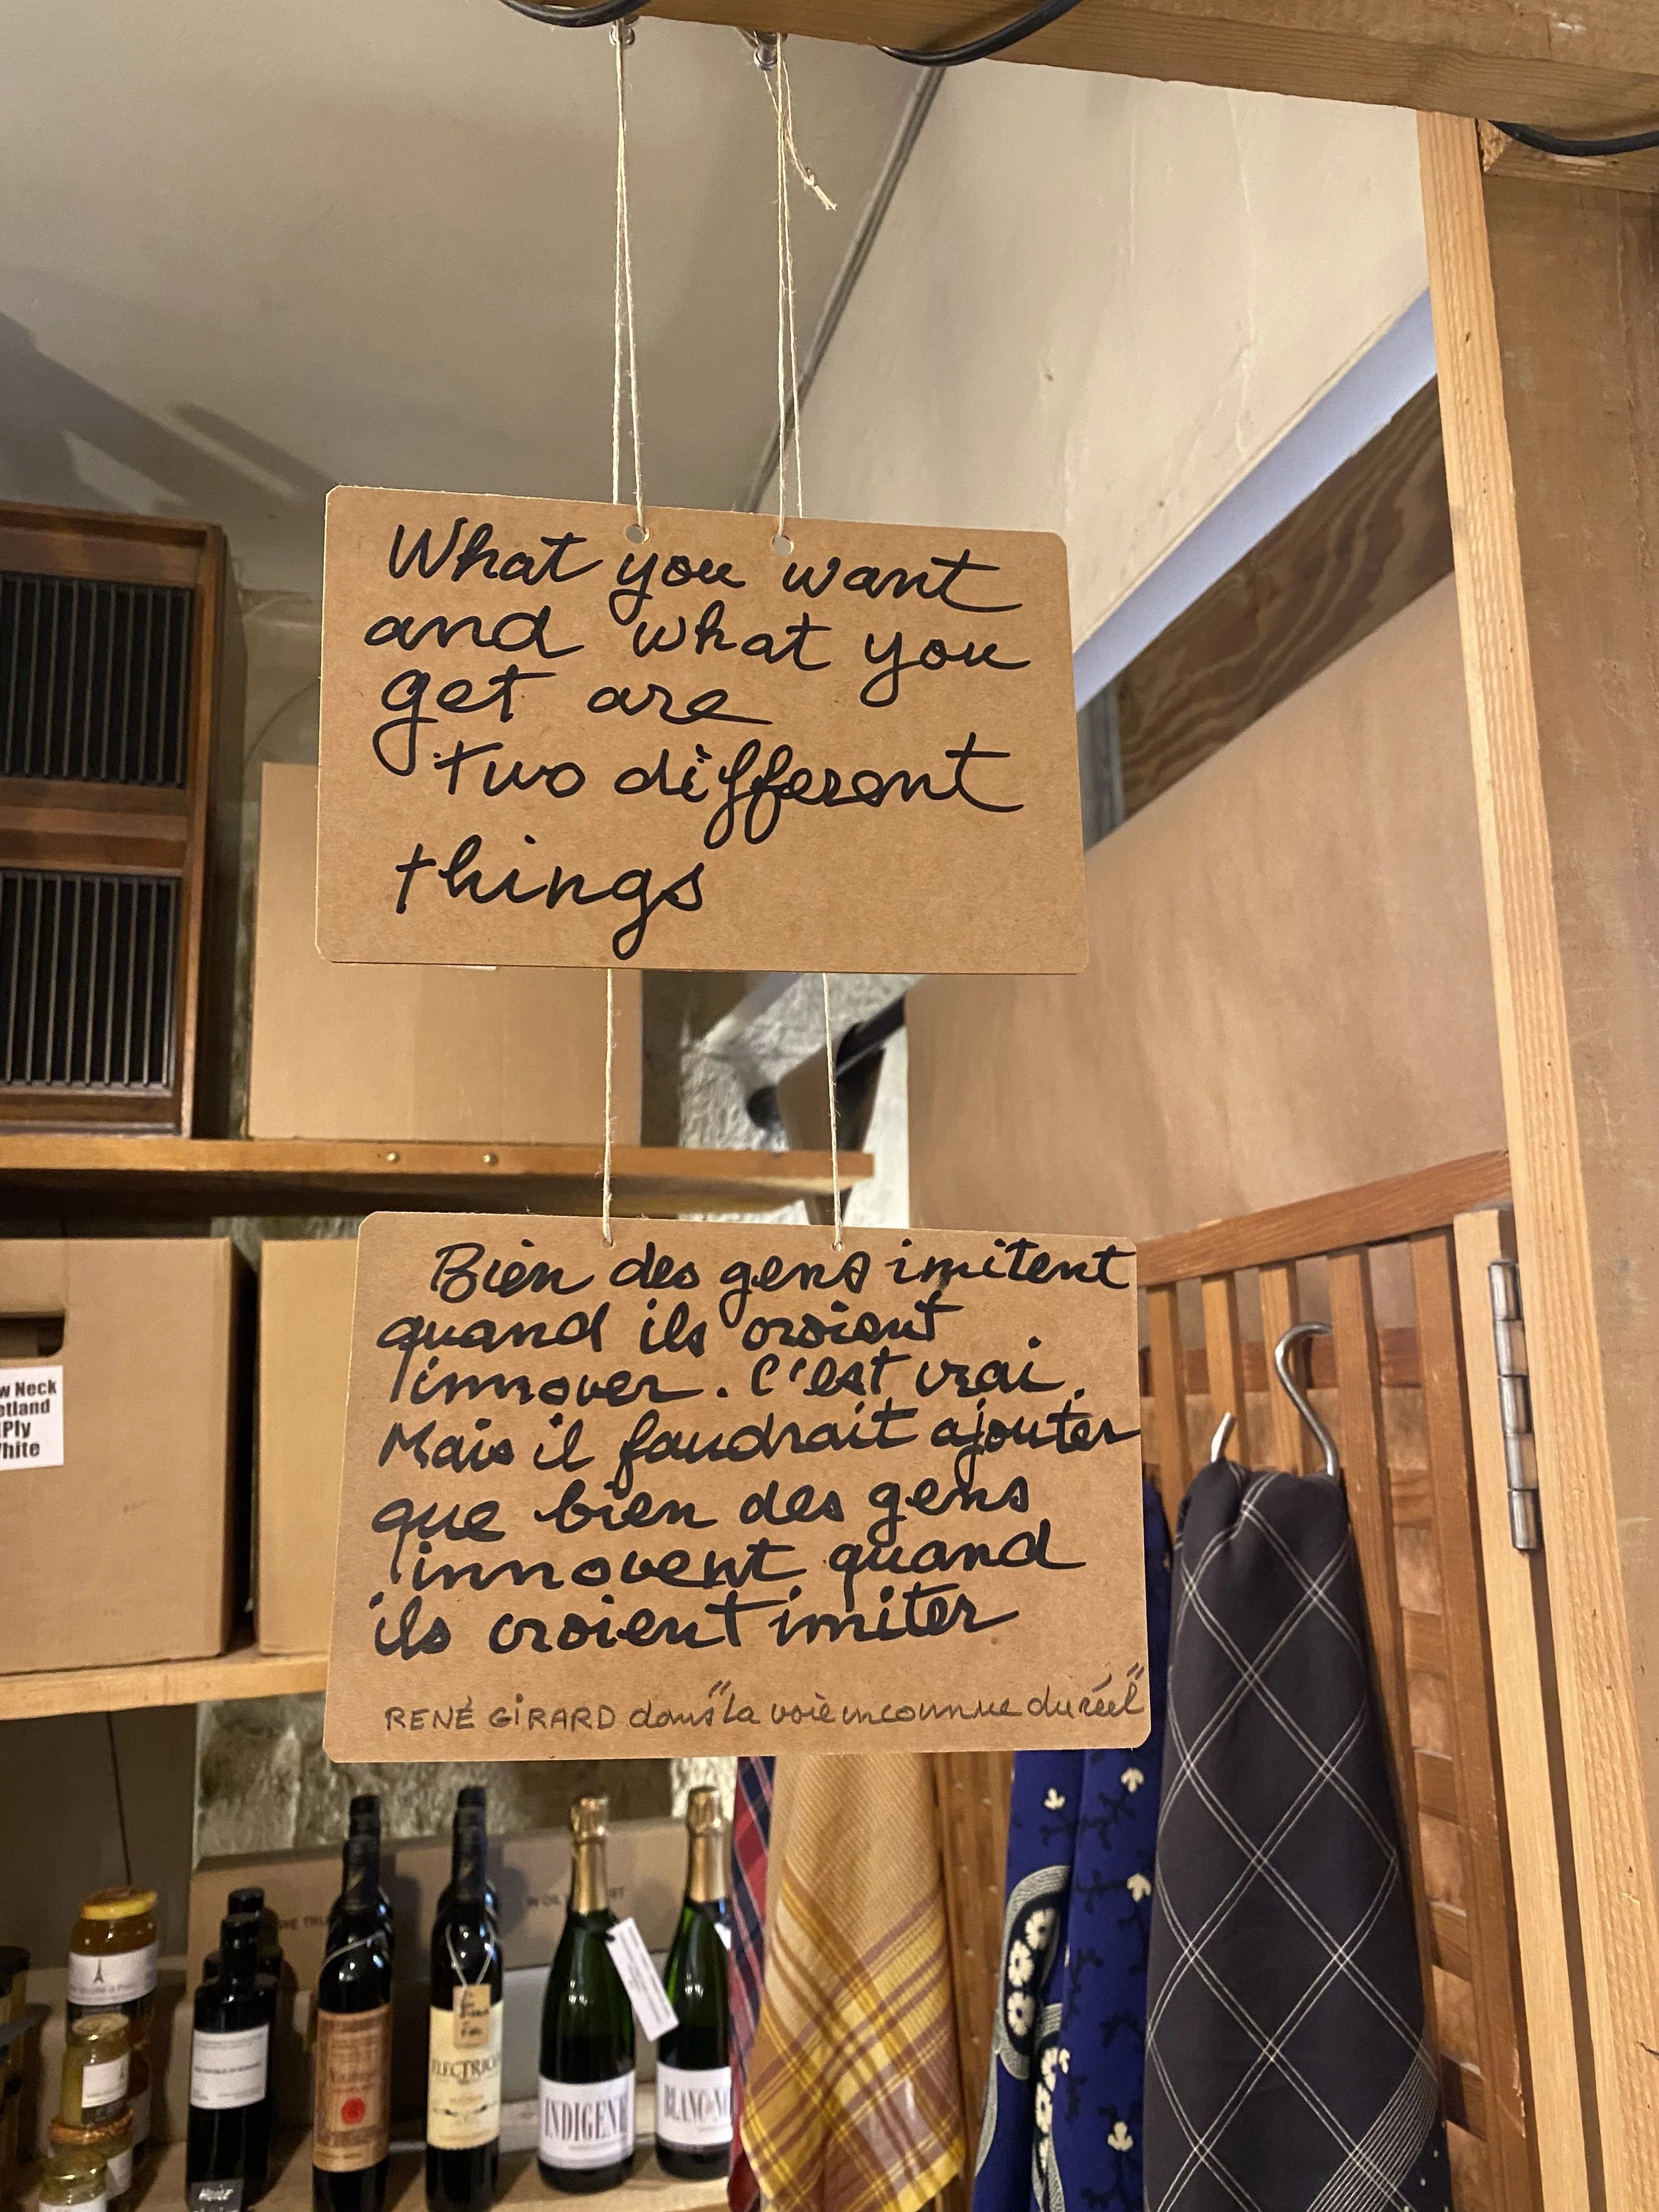 What you want
and what you
get are
two different
things
Bien des gens imitent
quand ils croient
innover. C'est vrai.
Mais il faudrait ajouter
que bien des gens
innovent quand
ils croient imiter
RENÉ GIRARD dans "La voie inconnue du réel"
w Neck
etland
Ply
White
INDIGENE
BLANC